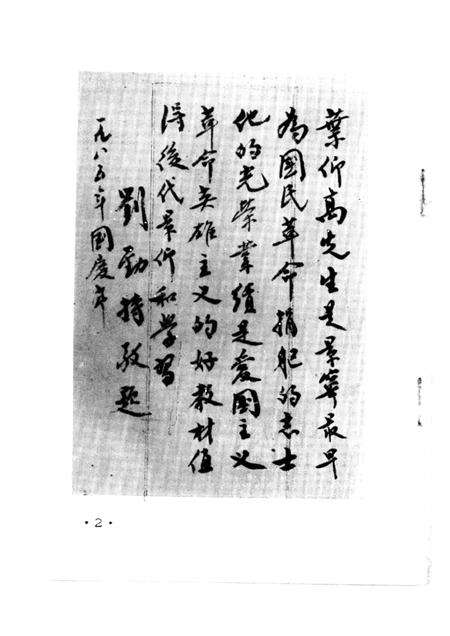 葉仰高先生是景寧最早
為國民革命捐軀的志士
他的光荣業績是愛國主义
革命英雄主义的好教材值
得後代景仰和學習
劉勁持敬题
一九八五年國慶节
·2·